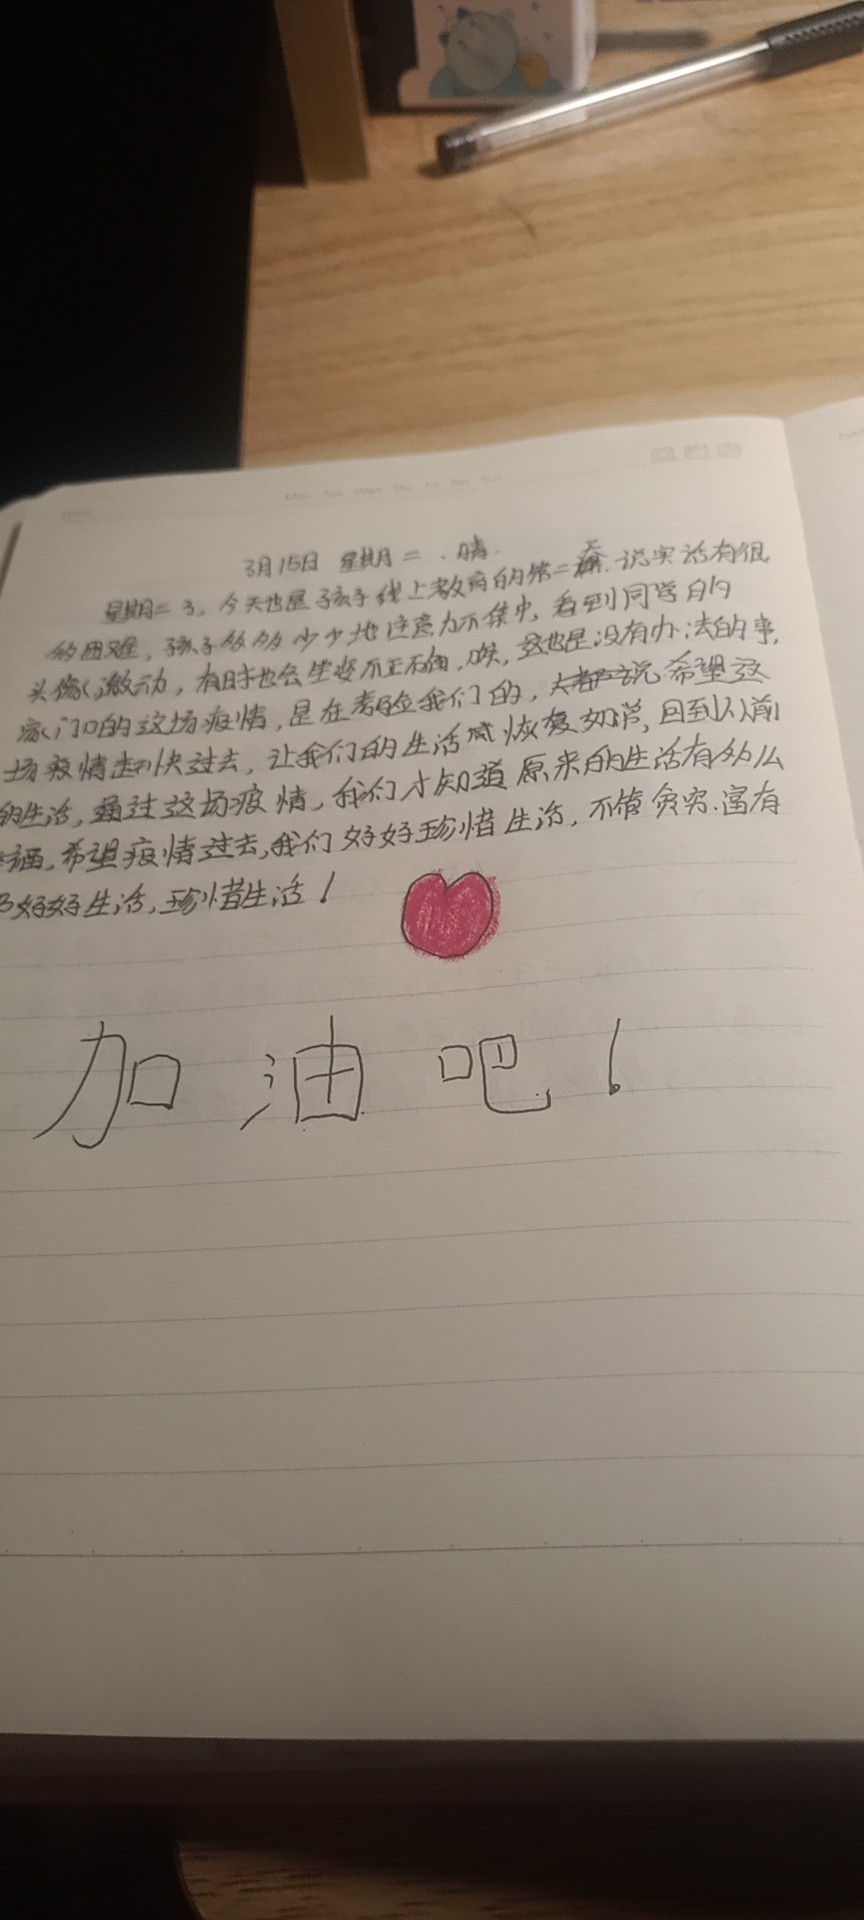 3月15日 星期二 . 晴.
星期二了,今天也是孩子线上教育的第二天.说实话有很
多困难,孩子多多少少地注意力不集中,看到同学的
头像激动,有时也会坐姿不正确,唉,这也是没有办法的事,
家门口的这场疫情,是在考验我们的,希望这
场疫情赶快过去,让我们的生活恢复如常,回到以前
的生活,通过这场疫情,我们才知道原来的生活有多么
幸福,希望疫情过去,我们好好珍惜生活,不管贫穷.富有
好好生活,珍惜生活!
加油吧!